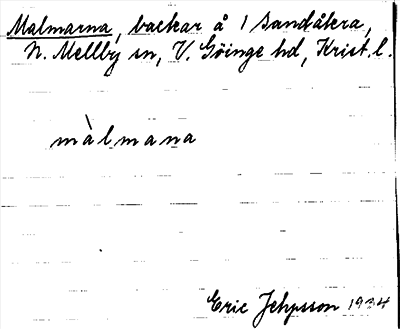 Malmarna, backar å 1 Sandåkra,
N. Mellby sn, V. Göinge hd, Krist. l.
màlmana
Eric Jepsson 1934